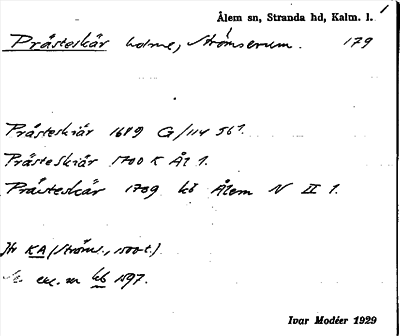 Ålem sn, Stranda hd, Kalm. l. 1
Prästeskär holme, Strömserum. 179
Prästeskiär 1689 G/114 56 1.
Prästeskiär 1700 K Ål 1.
Prästeskär 1709 kö Ålem N II 1.
Hr KA (Ströms., 1500-t.)
ek. m kb 1897.
Ivar Modéer 1929